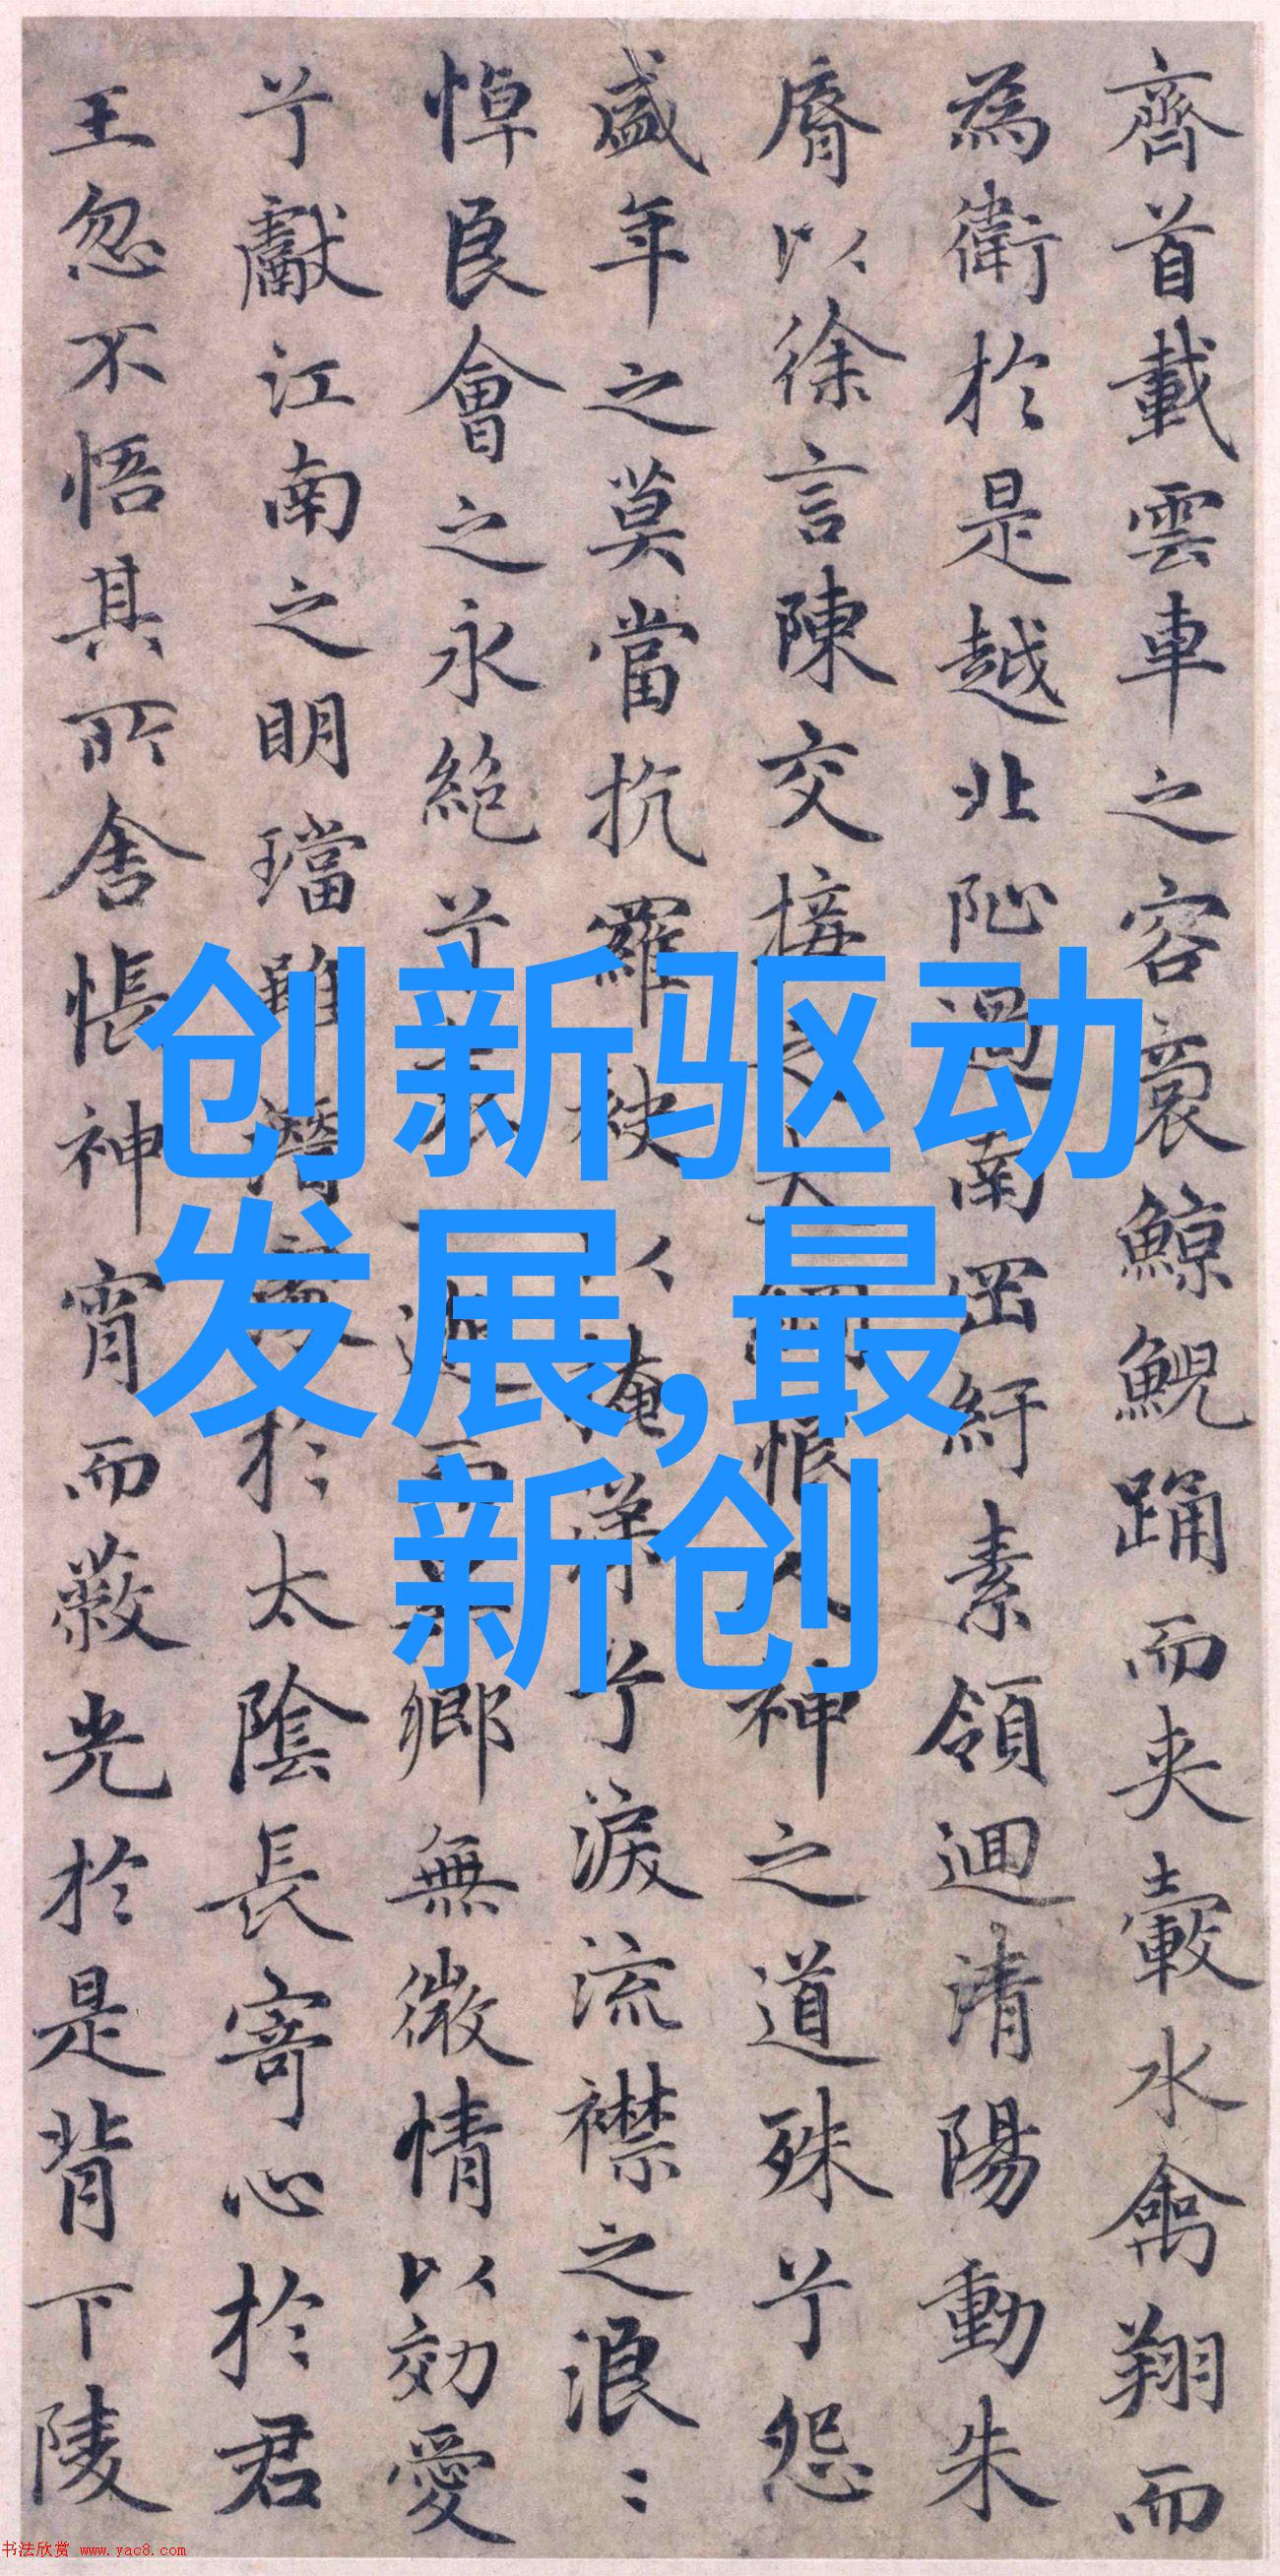 齊首載雲車之容裔鯨鯢踊而夾轂水禽翔而
為衛於是越北沚過南岡紆素領迴清陽動朱
脣以徐言陳交接之大綱恨人神之道殊兮怨
盛年之莫當抗羅袂以掩涕兮淚流襟之浪〻
悼良會之永絕兮哀一逝而異鄉無微情以効愛
兮獻江南之明璫雖潛處於太陰長寄心於君
王忽不悟其所舍悵神宵而蔽光於是背下陵
创新驱动
发展,最
新创
书法欣赏 www.yac8.com